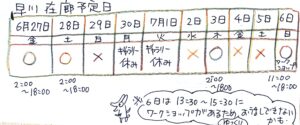 早川 在廊予定日
6月27日 28日 29日 30日 7月1日 2日 3日 4日 5日 6日
金 土 日 月 火 水 木 金 土 日
○ ○ × ギャラリー休み ギャラリー休み × ○ × × ○
ワークショップ
2:00~18:00 2:00~18:00 2:00~18:00 11:00~18:00
※ 6日は13:30~15:30に
ワークショップがあるため、お話しできない
かも